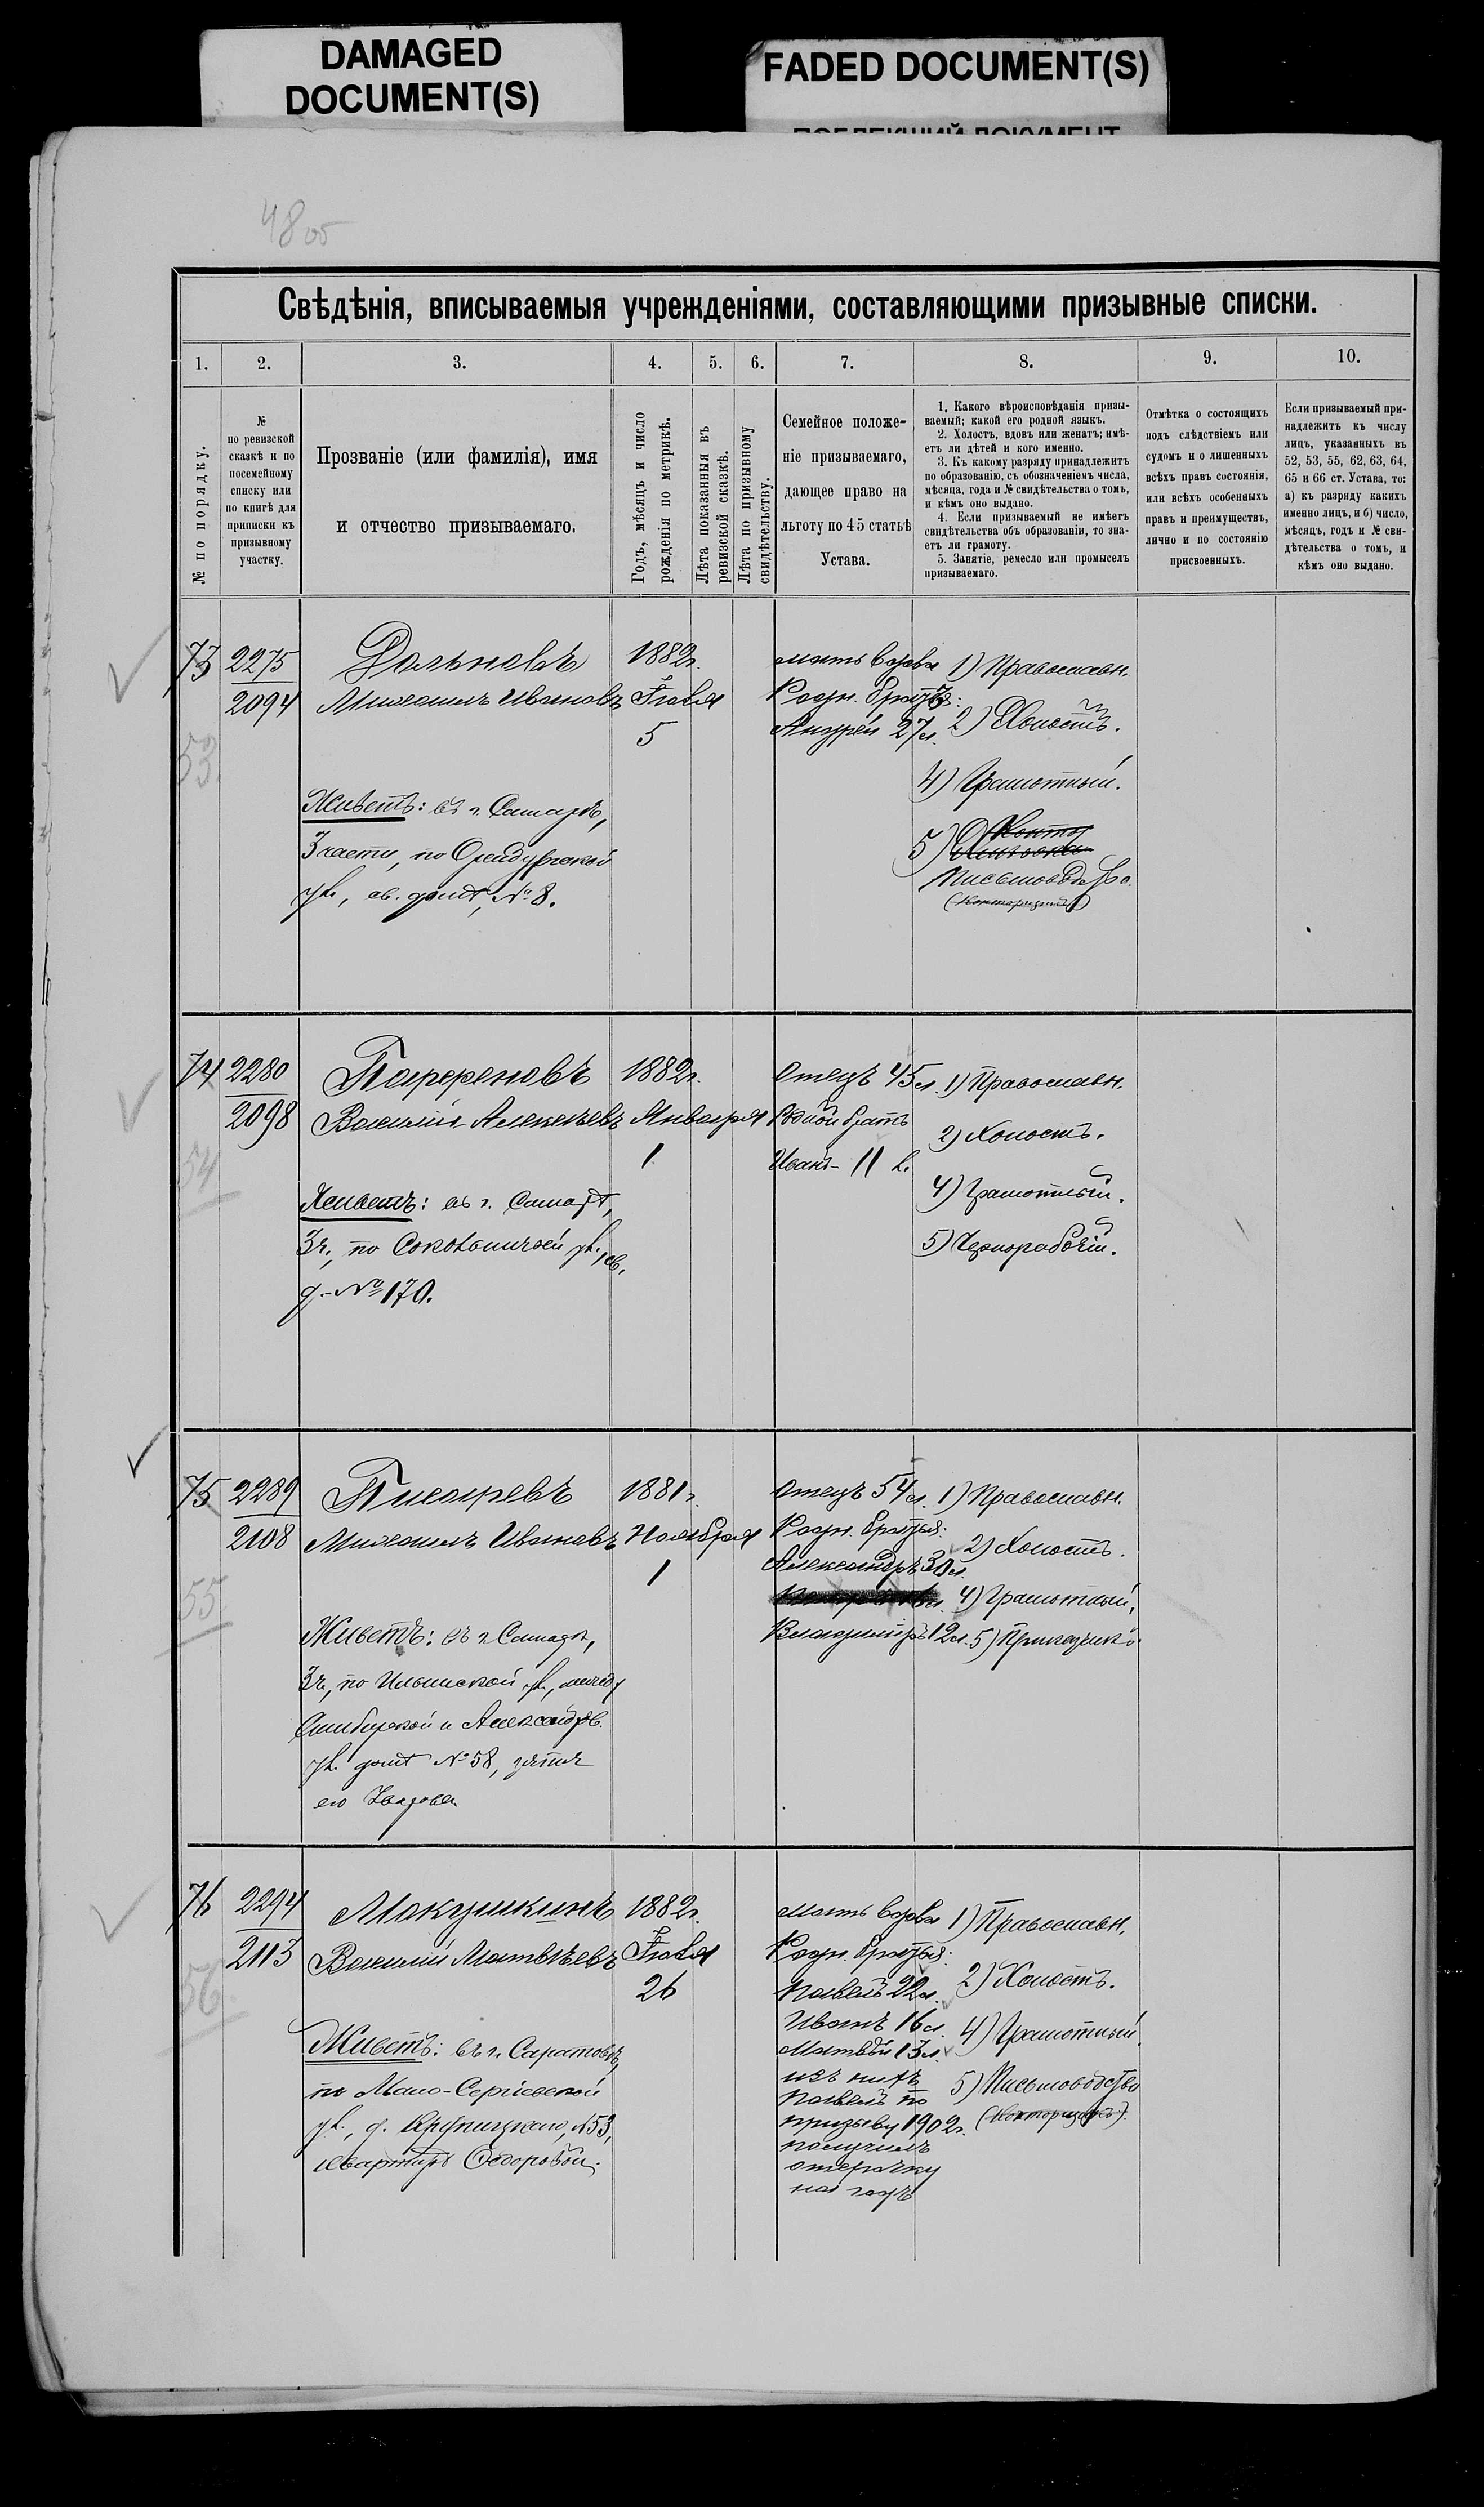 DAMAGED
DOCUMENT(S)
FADED DOCUMENT(S)
ПОБЛЕКШИЙ ДОКУМЕНТ
48 об
Свѣдѣнія, вписываемыя учрежденіями, составляющими призывные списки.
1. 2. 3. 4. 5. 6. 7. 8. 9. 10.
№ по порядку.
№
по ревизской
сказкѣ и по
посемейному
списку или
по книгѣ для
приписки къ
призывному
участку.
Прозваніе (или фамилія), имя
и отчество призываемаго.
Годъ, мѣсяцъ и число
рожденія по метрикѣ.
Лѣта показанныя въ
ревизской сказкѣ.
Лѣта по призывному
свидѣтельству.
Семейное положе-
ніе призываемаго,
дающее право на
льготу по 45 статьѣ
Устава.
1. Какого вѣроисповѣданія призы-
ваемый; какой его родной языкъ.
2. Холостъ, вдовъ или женатъ; имѣ-
етъ ли дѣтей и кого именно.
3. Къ какому разряду принадлежитъ
по образованію, съ обозначеніемъ числа,
мѣсяца, года и № свидѣтельства о томъ,
и кѣмъ оно выдано.
4. Если призываемый не имѣетъ
свидѣтельства объ образованіи, то зна-
етъ ли грамоту.
5. Занятіе, ремесло или промыселъ
призываемаго.
Отмѣтка о состоящихъ
подъ слѣдствіемъ или
судомъ и о лишенныхъ
всѣхъ правъ состоянія,
или всѣхъ особенныхъ
правъ и преимуществъ,
лично и по состоянію
присвоенныхъ.
Если призываемый при-
надлежитъ къ числу
лицъ, указанныхъ въ
52, 53, 55, 62, 63, 64,
65 и 66 ст. Устава, то:
а) къ разряду какихъ
именно лицъ, и б) число,
мѣсяцъ, годъ и № сви-
дѣтельства о томъ, и
кѣмъ оно выдано.
73
2275
2094
53
Дольновъ
Михаилъ Ивановъ
Живетъ: въ г. Самарѣ,
3 части, по Оренбургской
ул., св. домѣ, № 8.
1882г.
Іюля
5
мать вдова
Родн. братья:
Андрей 27 л.
1) Православн.
2) Холостъ.
4) Грамотный.
5) Контор
Письмоводство
(Конторщикъ)
74
2280
2098
54
Парфеновъ
Василій Алексѣевъ
Живетъ: въ г. Самарѣ,
3ч., по Соколничьей ул., св.
д. № 170.
1882г.
Января
1
Отецъ 45 л.
Родной братъ
Иванъ - 11 л.
1) Православн.
2) Холостъ.
4) Грамотный.
5) Чернорабочій.
75
2289
2108
55
Писаревъ
Михаилъ Ивановъ
Живетъ: въ г. Самарѣ,
3ч., по Ильинской ул., между
Симбирской и Александров.
ул. домѣ № 58, зятя
его
1881г.
Ноября
1
Отецъ 54 л.
Родн. братья:
Александръ 30 л.
Владиміръ 12 л.
1) Православн.
2) Холостъ.
4) Грамотный.
5) Приказчикъ.
76
2294
2113
56
Макушкинъ
Василій Матвѣевъ
Живетъ: въ г. Саратовѣ,
по Мало-Сергіевской
ул., д. Крупицкаго, № 53,
квартирѣ Федоровой.
1882г.
Іюля
26
мать вдова
Родн. братья:
Павелъ 22 л.
Иванъ 16 л.
Матвѣй 13 л.
изъ нихъ
Павелъ по
призыву 1902г.
получилъ
отсрочку
на годъ
1) Православн.
2) Холостъ.
4) Грамотный.
5) Письмоводство
(Конторщикъ).